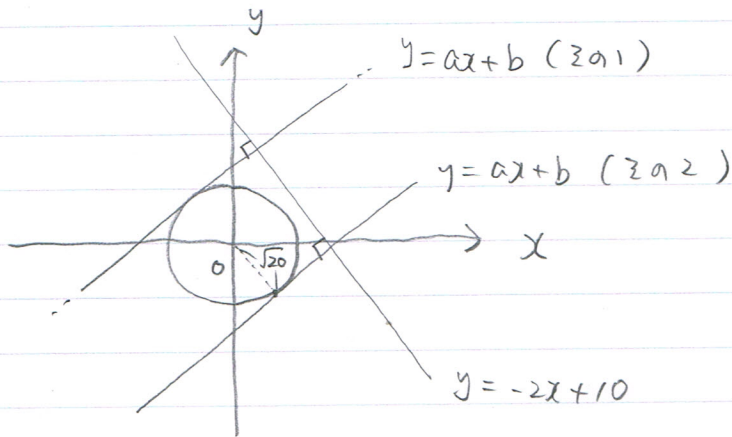 y
y=ax+b (その1)
y=ax+b (その2)
x
0
√20
y=-2x+10